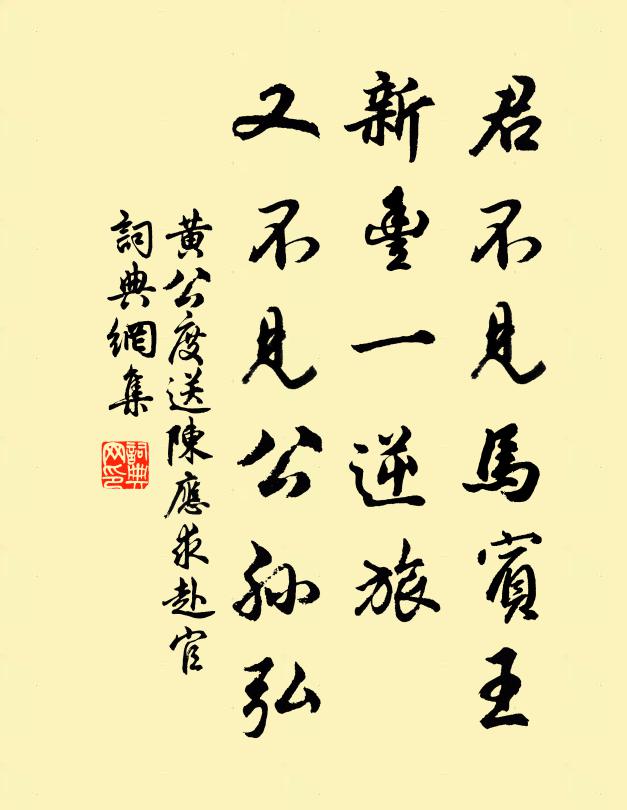 君不見馬賓王
新豐一逆旅
又不見公孫弘
黃公度送陳應求赴官
詞典網集
詞典
网印